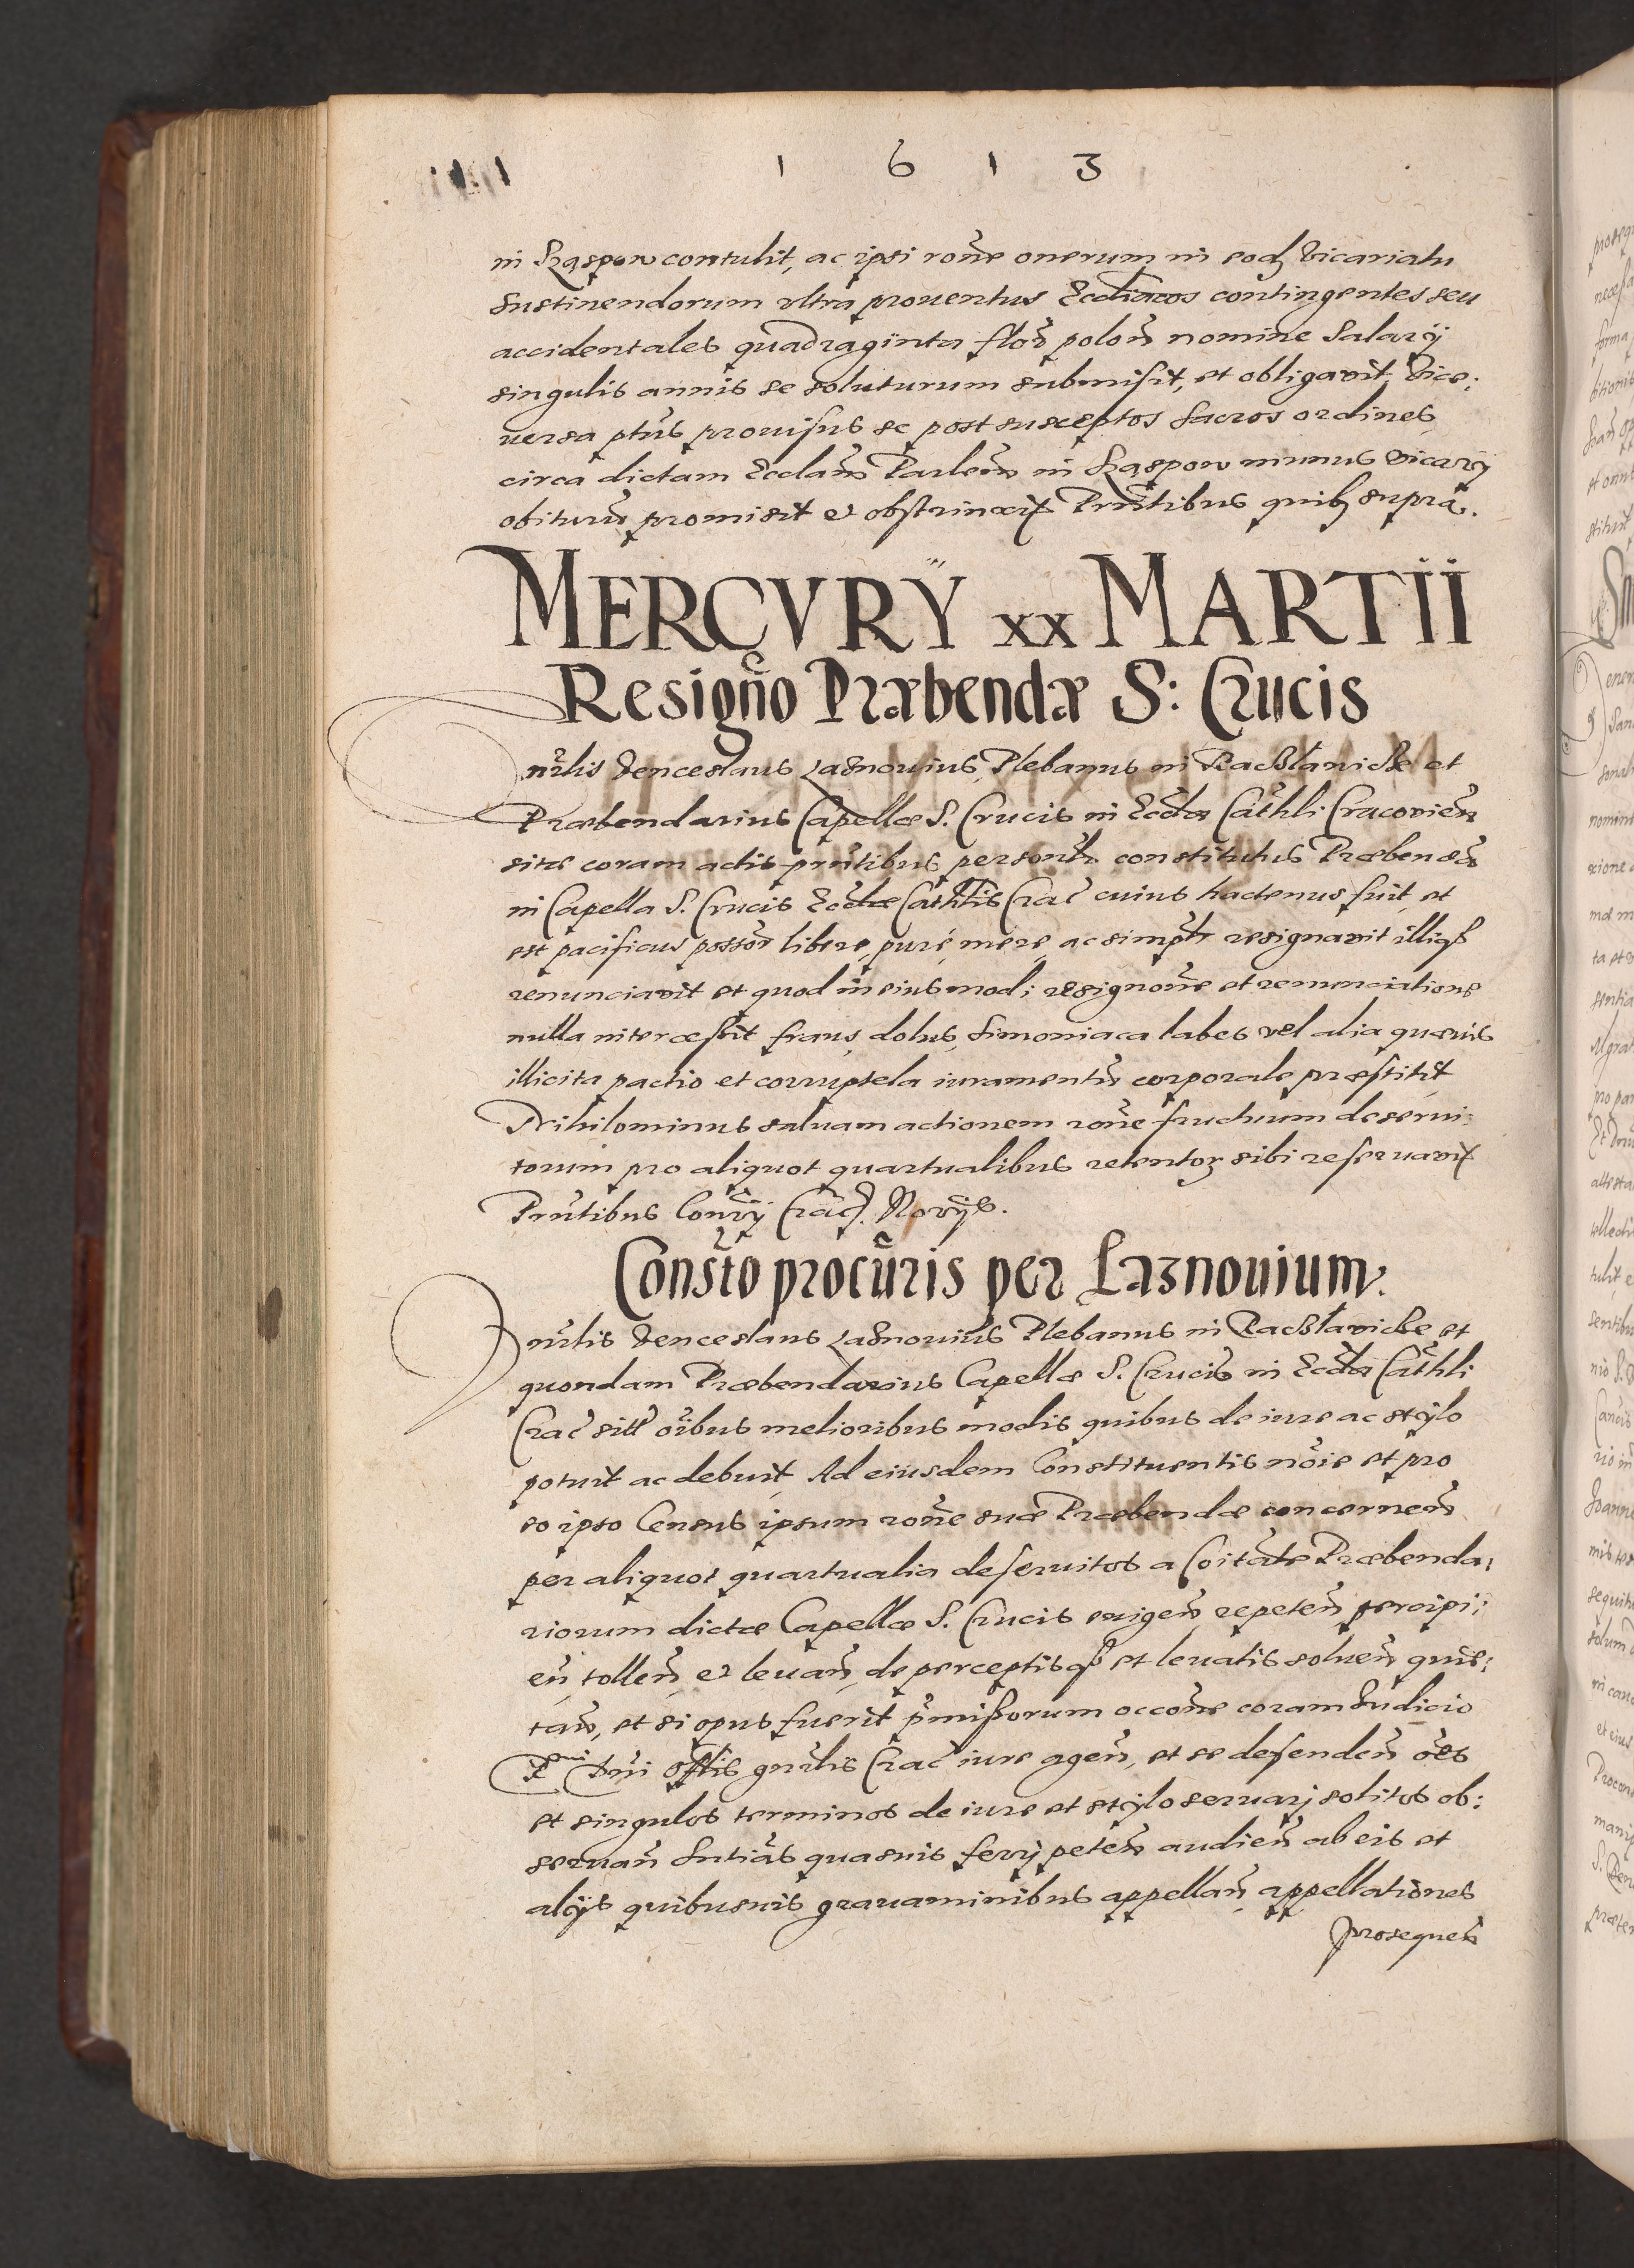 1 6 1 3
in Krąspow contulit, ac ipsi rone onerum in eodę Vicariatu
sustinendorum ultra prouentus Eccliacos contingentes seu
accidentales quadraginta flor polon nomine Salarÿ
singulis annis se soluturum submisit, et obligavit, Vice:
uersa ptus prouisus se post susceptos sacros ordines
circa dictam Ecclam Parlem in Krąspow munus Vicarÿ
obiturū promisit et obstrinxit Prntibus quibꝫ supra.
MERCVRŸ XX MARTII
Resigno Præbendæ S: Crucis
nrlis Venceslaus Laznouius Plebanus in Racłlawicze et
Præbendarius Capellæ S. Crucis in Eccla Cathli Cracovien
sitæ coram actis prntibus personlr constitutus Præbendā
in Capella S. Crucis Ecclæ Cathlis Crac cuius hactenus fuit et
est pacificus possor libere, pure, mere, ac simplr resignavit illiqꝫ
renunciavit et quod in eiusmodi resignone et renunciatione
nulla intercessit fraus, dolus, simoniaca labes vel alia quævis
illicita pactio et corruptela iuramentū corporale præstitit
Nihilominus saluam actionem rone fructuum deserui:
torum pro aliquot quartualibus retentoꝝ sibi reseruavit
Prntibus Conrÿ Crac. Norÿs.
Consto procuris per Laznouium.
nrlis Venceslaus Laznouius Plebanus in Racłlawicze et
quondam Præbendarius Capellæ S. Crucis in Eccla Cathli
Crac sitæ oibus melioribus modis quibus de iure ac stÿlo
potuit ac debuit, Ad eiusdem Constituentis noie et pro
eo ipso Census ipsum rone suæ Præbendæ concernen
per aliquot quartualia deseruitos a Coitate Præbenda:
riorum dictæ Capellæ S. Crucis exigen, repeten, percipi:
en, tollen, et leuan, de perceptis qꝫ et leuatis soluen quie:
tan, et si opus fuerit pmissorum occone coram Iudicio
Dni Offlis gnrlis Crac iure agen, et se defenden oes
et singulos terminos de iure et stÿlo seruari solitos ob:
seruan Sntias quasuis ferri peten audien ab eis et
alÿs quibusuis grauaminibus appellan, appellationes
prosequen